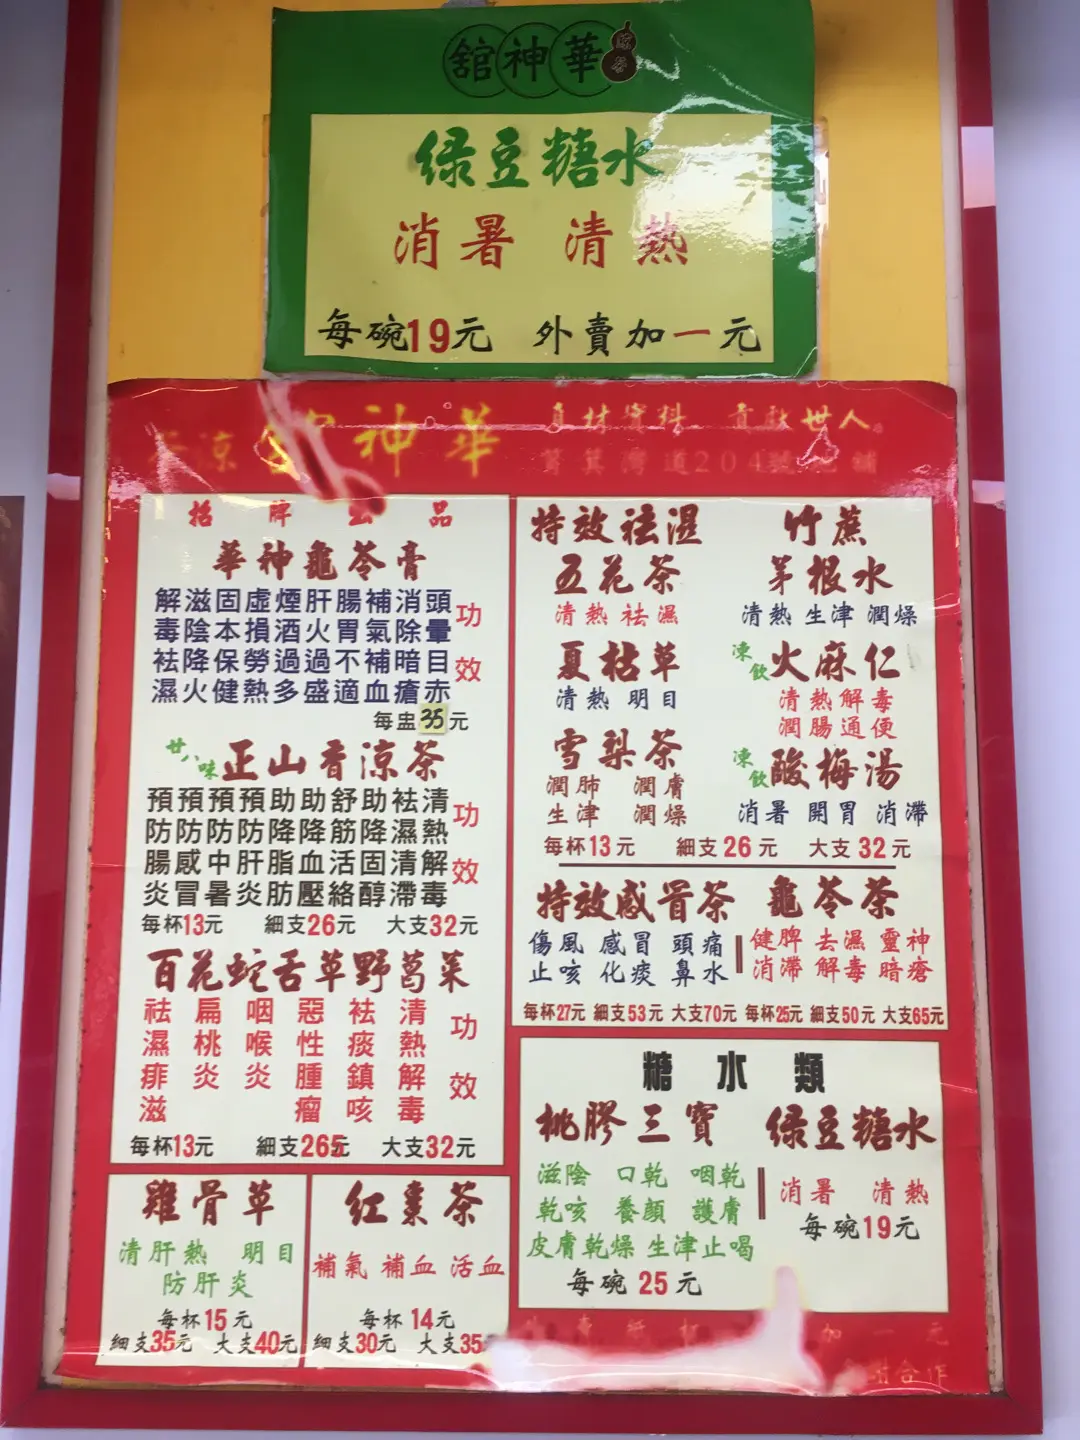 華神舘
涼茶
绿豆糖水
消暑 清熱
每碗19元 外賣加一元
華神舘 涼茶
真材實料 貢獻世人。
筲箕灣道204號地舖
招牌出品
華神龜苓膏
功效
頭暈目赤
消除暗瘡
補氣補血
腸胃不適
肝火過盛
煙酒過多
虛損勞熱
固本保健
滋陰降火
解毒袪濕
每盅35元
廿八味 正山香涼茶
功效
清熱解毒
袪濕清滯
助降固醇
舒筋活絡
助降血壓
助降脂肪
預防肝炎
預防中暑
預防感冒
預防腸炎
每杯13元 細支26元 大支32元
百花蛇舌草野葛菜
功效
清熱解毒
袪痰鎮咳
惡性腫瘤
咽喉炎
扁桃炎
祛濕痱滋
每杯13元 細支265元 大支32元
雞骨草
清肝熱 明目
防肝炎
每杯15元
細支35元 大支40元
红棗茶
補氣 補血 活血
每杯14元
細支30元 大支35
特效祛濕
五花茶
清熱 祛濕
夏枯草
清熱 明目
雪梨茶
潤肺 潤膚
生津 潤燥
竹蔗
茅根水
清熱 生津 潤燥
凍飲 火麻仁
清熱解毒
潤腸通便
凍飲 酸梅湯
消暑 開胃 消滯
每杯13元 細支26元 大支32元
特效感冒茶
傷風 感冒 頭痛
止咳 化痰 鼻水
每杯27元 細支53元 大支70元
龜苓茶
健脾 去濕 靈神
消滯 解毒 暗瘡
每杯25元 細支50元 大支65元
糖水類
桃膠三寶
滋陰 口乾 咽乾
乾咳 養顏 護膚
皮膚乾燥 生津止喝
每碗25元
绿豆糖水
消暑 清熱
每碗19元
加 元
合作